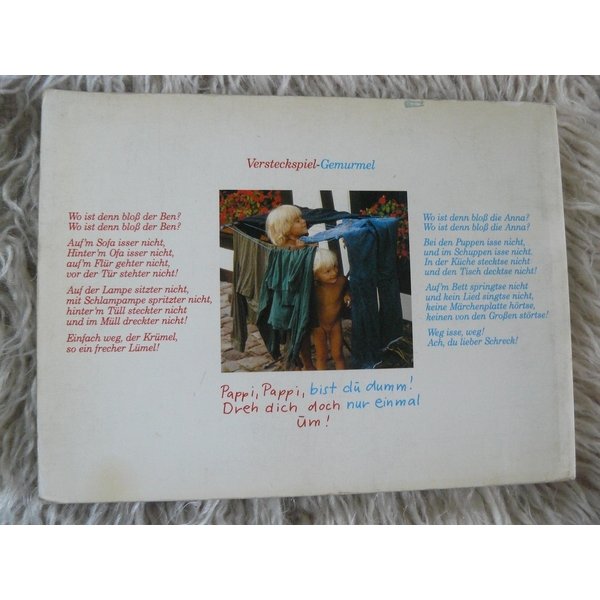 Versteckspiel-Gemurmel
Wo ist denn bloß der Ben?
Wo ist denn bloß der Ben?
Auf'm Sofa isser nicht,
Hinter'm Ofa isser nicht,
auf'm Flür gehter nicht,
vor der Tür stehter nicht!
Auf der Lampe sitzter nicht,
mit Schlampampe spritzter nicht,
hinter'm Tüll steckter nicht
und im Müll dreckter nicht!
Einfach weg, der Krümel,
so ein frecher Lümel!
Wo ist denn bloß die Anna?
Wo ist denn bloß die Anna?
Bei den Puppen isse nicht,
und im Schuppen isse nicht.
In der Küche stecktse nicht
und den Tisch decktse nicht!
Auf'm Bett springtse nicht
und kein Lied singtse nicht,
keine Märchenplatte hörtse,
keinen von den Großen störtse!
Weg isse, weg!
Ach, du lieber Schreck!
Pappi, Pappi, bist dū dumm!
Dreh dich doch nur einmal
ūm!